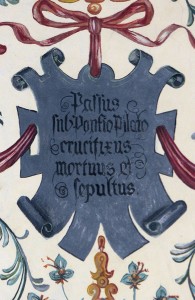 Passus
sub Pontio Pilato
crucifixus
mortuus et
sepultus.